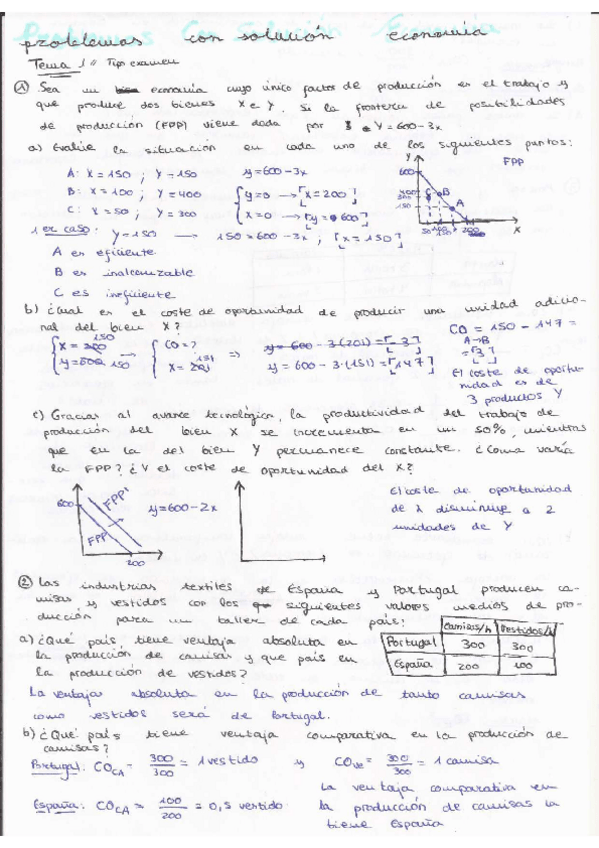 problemas con solución economía
Tema 1 // Tipo examen
① Sea un economía cuyo único factor de producción es el trabajo y
que produce dos bienes X e Y. Si la frontera de posibilidades
de producción (FPP) viene dada por Y = 600 - 3x
a) Evalúe la situación en cada uno de los siguientes puntos:
A: X = 150 ; Y = 150 y = 600 - 3x
B: X = 100 ; Y = 400 { y=0 → [x = 200]
C: X = 50 ; Y = 300 { x=0 → [y = 600]
1er caso: y = 150 → 150 = 600 - 3x ; [x = 150]
Y FPP
600
400 C B
300
150 A
50 100 150 200 X
A es eficiente
B es inalcanzable
C es ineficiente
b) ¿Cuál es el coste de oportunidad de producir una unidad adicio-
nal del bien X?
{ X = 200 150 → { CO = ? ⇒ y = 600 - 3(201) = [3]
{ y = 600 150 → { X = 201 151 ⇒ y = 600 - 3·(151) = [147]
CO = 150 - 147 =
A→B
= [3]
El coste de oportu-
nidad es de
3 productos Y
c) Gracias al avance tecnológico, la productividad del trabajo de
producción del bien X se incrementa en un 50%, mientras
que en la del bien Y permanece constante. ¿Como varía
la FPP? ¿Y el coste de oportunidad del X?
600 FPP' FPP 200
y = 600 - 2x
El coste de oportunidad
de X disminuye a 2
unidades de Y
② Las industrias textiles de España y Portugal producen ca-
misas y vestidos con los siguientes valores medios de pro-
ducción para un taller de cada país:
camisas/h Vestidos/h
Portugal 300 300
España 200 100
a) ¿Qué país tiene ventaja absoluta en
la producción de camisas y que país en
la producción de vestidos?
La ventaja absoluta en la producción de tanto camisas
como vestidos será de Portugal.
b) ¿Qué país tiene ventaja comparativa en la producción de
camisas?
Portugal: CO CA = 300/300 = 1 vestido y CO VE = 300/300 = 1 camisa
España: CO CA = 100/200 = 0,5 vestido
La ventaja comparativa en
la producción de camisas la
tiene España